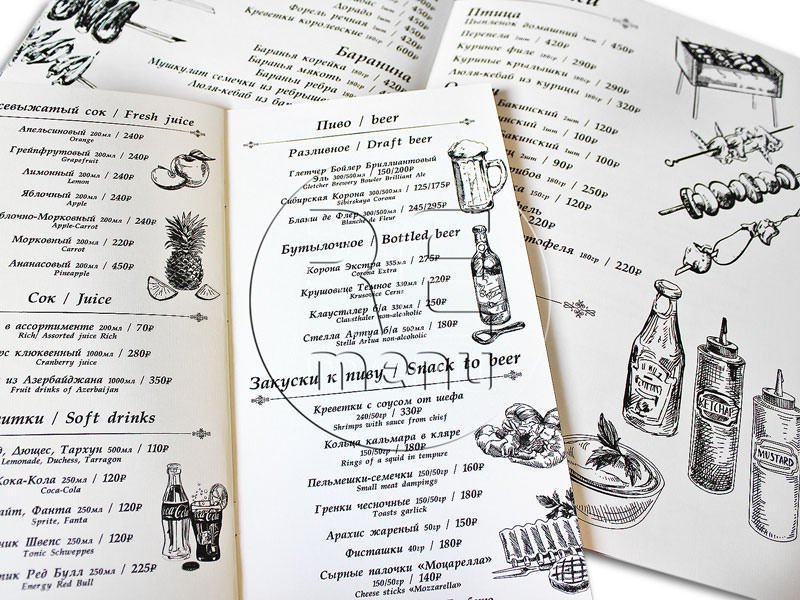 Дорадо
Форель речная 2шт / 450₽
Креветки королевские 100гр / 600₽
Баранина
Баранья корейка 180гр / 420₽
Баранья мякоть 180гр /
Бараньи ребра
Мушкулат семечки из ребрышек
Люля-кебаб из
Птица
Цыпленок домашний 1шт / 450₽
Перепела 2шт / 420₽
Куриное филе 180гр / 290₽
Куриные крылышки 180гр / 290₽
Люля-кебаб из курицы 180гр / 320₽
Бакинский 2шт / 120₽
Бакинский 1шт / 100₽
2шт / 90₽
180гр / 250₽
150гр / 120₽
180гр / 220₽
KETCHUP
MUSTARD
сок / Fresh juice
Апельсиновый 200мл / 240₽
Orange
Грейпфрутовый 200мл / 240₽
Grapefruit
Лимонный 200мл / 240₽
Lemon
Яблочный 200мл / 240₽
Apple
блочно-Морковный 200мл / 240₽
Apple-Carrot
Морковный 200мл / 220₽
Carrot
Ананасовый 200мл / 450₽
Pineapple
Сок / Juice
в ассортименте 200мл / 70₽
Rich/ Assorted juice Rich
рс клюквенный 1000мл / 280₽
Cranberry juice
из Азербайджана 1000мл / 350₽
Fruit drinks of Azerbaijan
итки / Soft drinks
Дюшес, Тархун 500мл / 110₽
Lemonade, Duchess, Tarragon
Кока-Кола 250мл / 120₽
Coca-Cola
айт, Фанта 250мл / 120₽
Sprite, Fanta
ник Швепс 250мл / 120₽
Tonic Schweppes
тик Ред Булл 250мл / 225₽
Energy Red Bull
Пиво / beer
Разливное / Draft beer
Глетчер Бойлер Бриллиантовый
Эль 300/500мл / 150/200₽
Gletcher Brewery Bowler Brilliant Ale
Сибирская Корона 300/500мл / 125/175₽
Sibirskaya Corona
Бланш де Флер 300/500мл / 245/295₽
Blanche de Fleur
Бутылочное / Bottled beer
Корона Экстра 355мл / 275₽
Corona Extra
Крушовице Темное 330мл / 220₽
Krusovice Cerne
Клаустлер б/а 330мл / 250₽
Clausthaler non-alcoholic
Стелла Артуа б/а 500мл / 180₽
Stella Artua non-alcoholic
menu
Закуски к пиву / Snack to beer
Креветки с соусом от шефа
240/50гр / 330₽
Shrimps with sauce from chief
Кольца кальмара в кляре
150/50гр / 180₽
Rings of a squid in tempure
Пельмешки-семечки 150/50гр / 160₽
Small meat dampings
Гренки чесночные 150/50гр / 180₽
Toasts garlick
Арахис жареный 50гр / 150₽
Фисташки 40гр / 180₽
Сырные палочки «Моцарелла»
150/50гр / 140₽
Cheese sticks «Mozzarella»